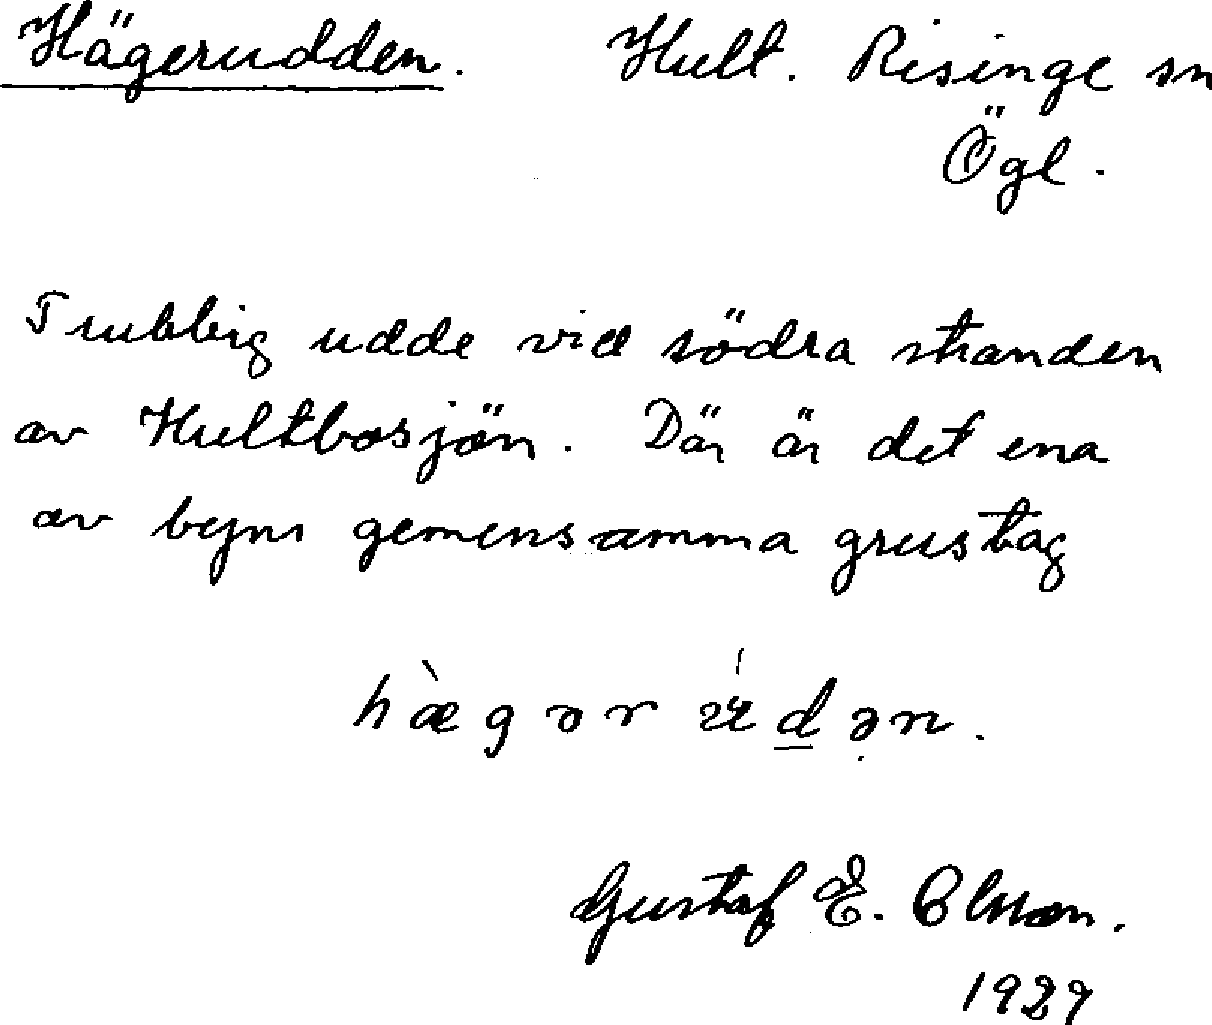 Hägerudden. Hult. Risinge sn
Ögl.
Trubbig udde vid södra stranden
av Hultbosjön. Där är det ena
av byns gemensamma grustag
Gustaf E. Olsson.
1929